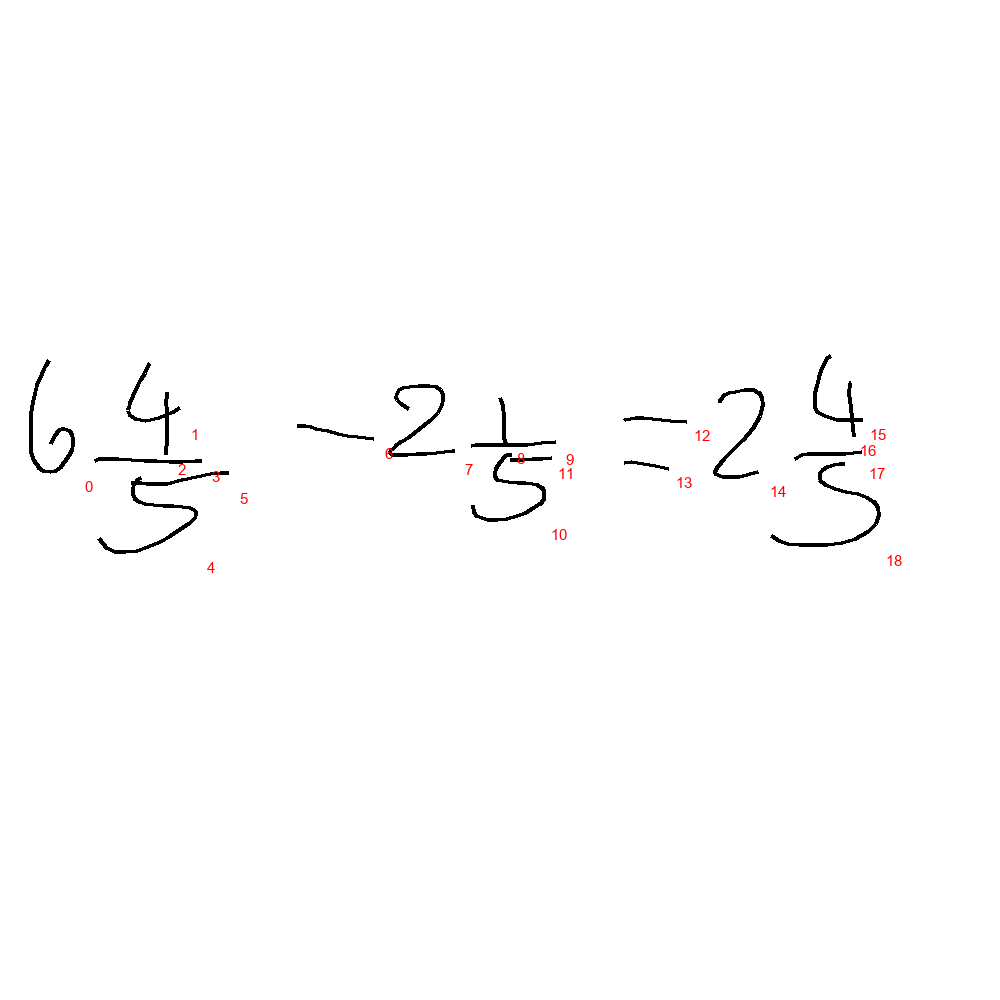 6 4/5 - 2 1/5 = 2 4/5
0 1 2 3 4 5 6 7 8 9 10 11 12 13 14 15 16 17 18